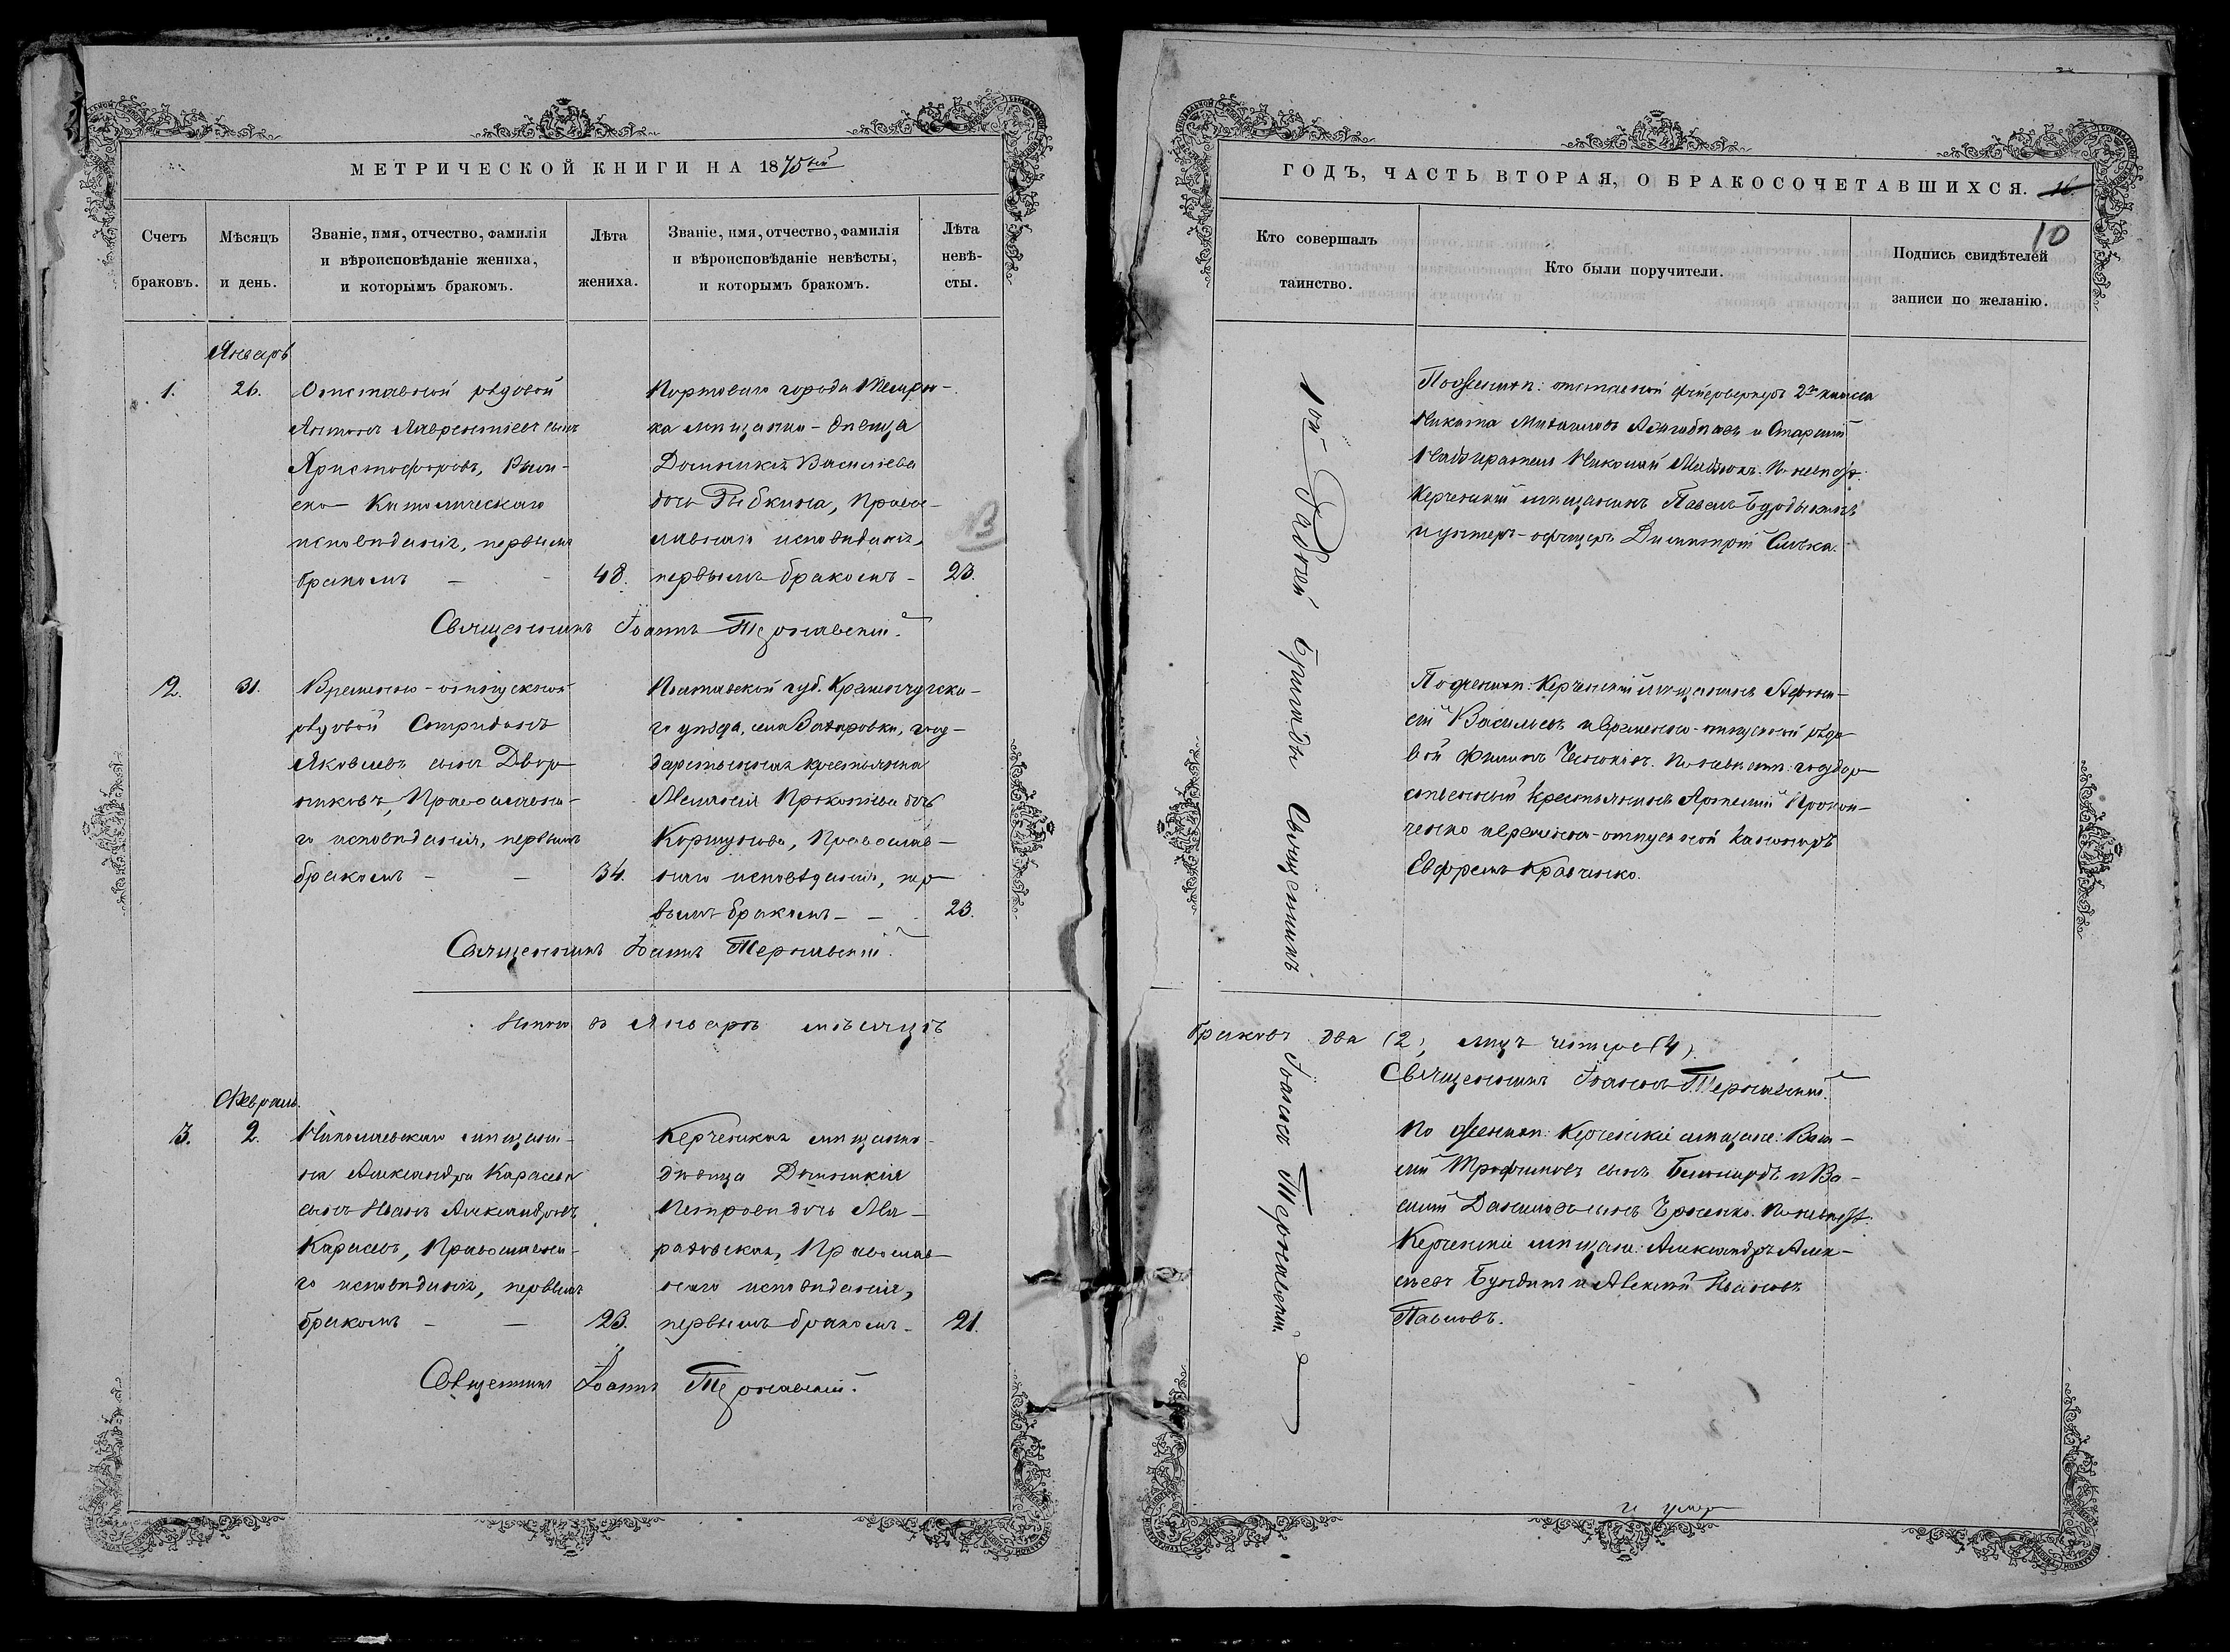 МЕТРИЧЕСКОЙ КНИГИ НА 1875ый
Счетъ браковъ.
Мѣсяцъ и день.
Званіе, имя, отчество, фамилія
и вѣроисповѣданіе жениха,
и которымъ бракомъ.
Лѣта жениха.
Званіе, имя, отчество, фамилія
и вѣроисповѣданіе невѣсты,
и которымъ бракомъ.
Лѣта невѣ-
сты.
Январь
1.
26.
Отставной рядовой
Антонъ Лаврентіевъ сынъ
Христофоровъ, Рим-
ско Католическаго
исповѣданія, первымъ
бракомъ - -
48.
Портоваго города Темрю-
ка мѣщанка - дѣвица
Домникія Василіева
дочь Рыбкина, Право-
славнаго исповѣданія,
первымъ бракомъ -
23.
Священникъ Іоаннъ Тернавскій.
2.
31.
Временно-отпускной
рядовой Спиридонъ
Яковлевъ сынъ Двор
никовъ, Православна-
го исповѣданія, первымъ
бракомъ - -
34.
Полтавской губ. Кременчугска-
го уѣзда, села Захаровки, госу-
дарственная крестьянка
Меланія Прокопіева дочь
Коршунова, Православ-
наго исповѣданія, пер
вымъ бракомъ - -
23.
Священникъ Іоаннъ Тернавскій.
Итого въ Январѣ мѣсяцѣ
Февраль.
3.
2.
Николаевскаго мѣщани-
на Александра Карасева
сынъ Иванъ Александровъ
Карасевъ, Православна-
го исповѣданія, первымъ
бракомъ - -
23.
Керченская мѣщанка-
дѣвица Домникія
Петрова дочь
Православ-
наго исповѣданія,
первымъ бракомъ -
21.
Священникъ Іоаннъ Тернавскій.
ГОДЪ, ЧАСТЬ ВТОРАЯ, О БРАКОСОЧЕТАВШИХСЯ.
10
Кто совершалъ
таинство.
Кто были поручители.
Подпись свидѣтелей
записи по желанію.
Священникъ
Іоаннъ Тернавскій
По женихѣ: отставной фейерверкеръ 2го класса
Никита Михаиловъ и Старшій
Надзиратель Николай По невѣстѣ:
Керченскій мѣщанинъ Павелъ
и унтеръ-офицеръ Димитрій
По женихѣ: Керченскій мѣщанинъ Афона-
сій Васильевъ и временно-отпускной рядо
вой Филипъ По невѣстѣ: государ
ственный крестьянинъ Артемій Прокоп-
ченко и временно-отпускной канониръ
Евфремъ Кравченко.
браковъ два (2), лицъ четыре (4).
Священникъ Іоаннъ Тернавскій.
По женихѣ: Керченскіе мѣщане: Васи-
лій Трофимовъ сынъ и Ва-
силій Даниловъ сынъ По невѣстѣ:
Керченскіе мѣщане: Александръ Алек-
сѣевъ и Алексѣй Ивановъ
Павловъ.